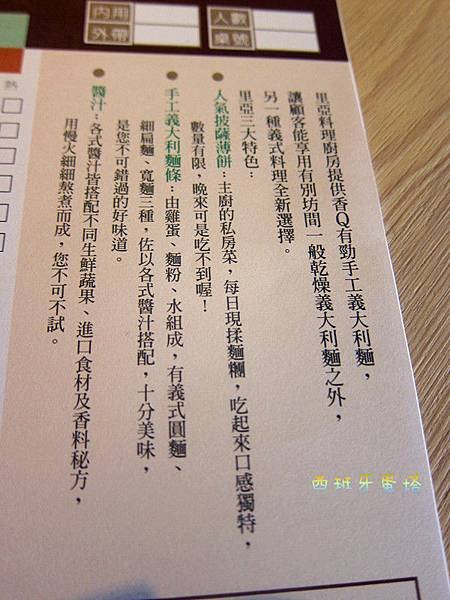 內用
外帶
人數
桌號
熱
里亞料理廚房提供香Q有勁手工義大利麵，
讓顧客能享用有別坊間一般乾燥義大利麵之外，
另一種義式料理全新選擇。
里亞三大特色：
●人氣披薩薄餅：主廚的私房菜，每日現揉麵糰，吃起來口感獨特，
數量有限，晚來可是吃不到喔！
●手工義大利麵條：由雞蛋、麵粉、水組成，有義式圓麵、
細扁麵、寬麵三種，佐以各式醬汁搭配，十分美味，
是您不可錯過的好味道。
●醬汁：各式醬汁皆搭配不同生鮮蔬果、進口食材及香料秘方，
用慢火細細熬煮而成，您不可不試。
西班牙蛋塔